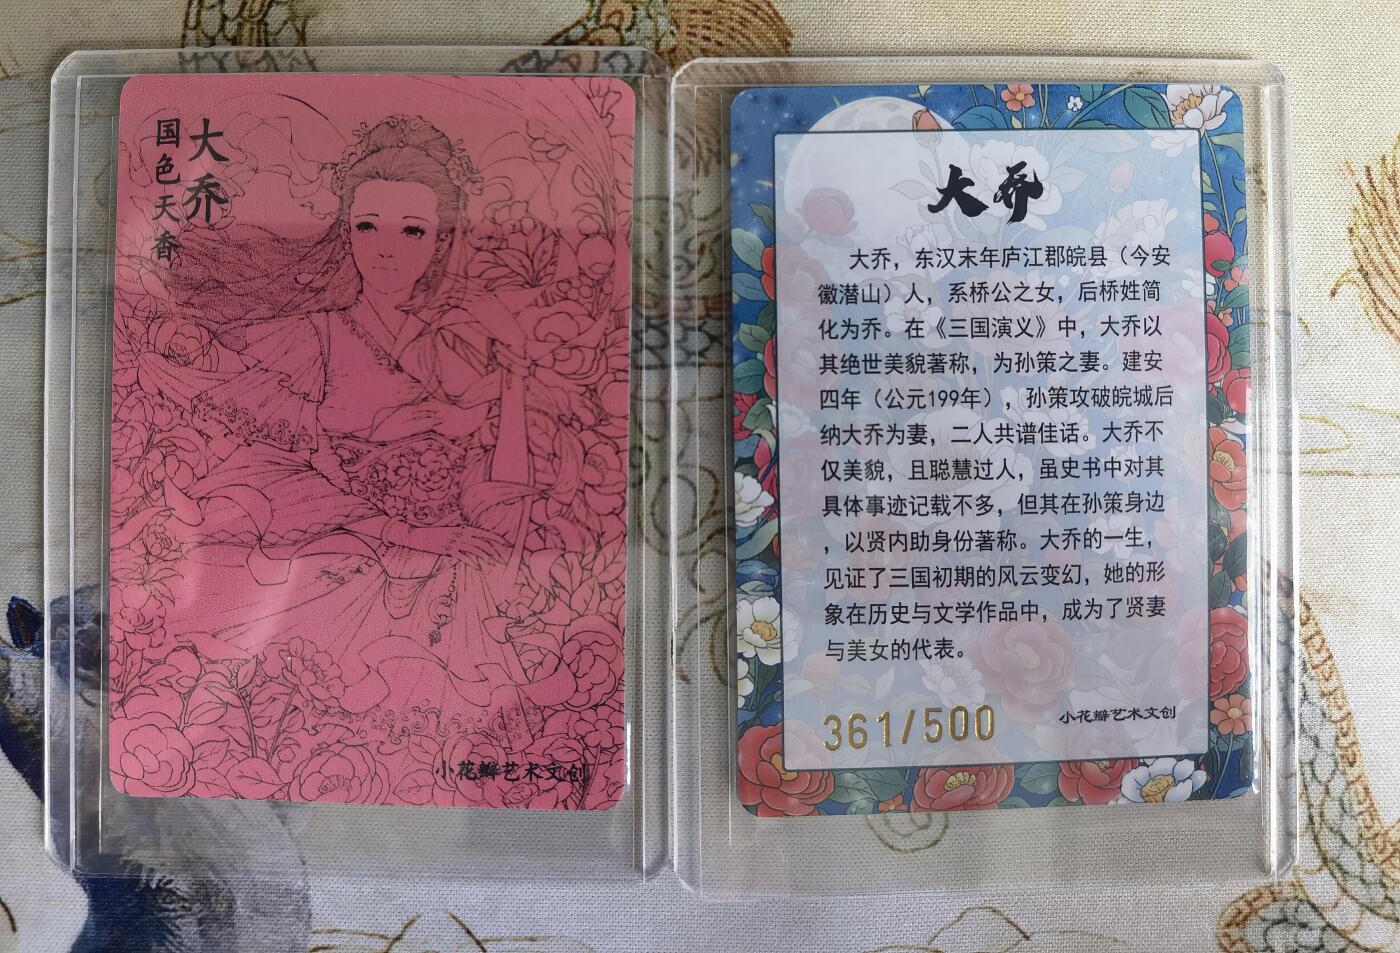 大乔
国色天香
小花瓣艺术文创
大乔
大乔，东汉末年庐江郡皖县（今安
徽潜山）人，系桥公之女，后桥姓简
化为乔。在《三国演义》中，大乔以
其绝世美貌著称，为孙策之妻。建安
四年（公元199年），孙策攻破皖城后
纳大乔为妻，二人共谱佳话。大乔不
仅美貌，且聪慧过人，虽史书中对其
具体事迹记载不多，但其在孙策身边
，以贤内助身份著称。大乔的一生，
见证了三国初期的风云变幻，她的形
象在历史与文学作品中，成为了贤妻
与美女的代表。
361/500
小花瓣艺术文创